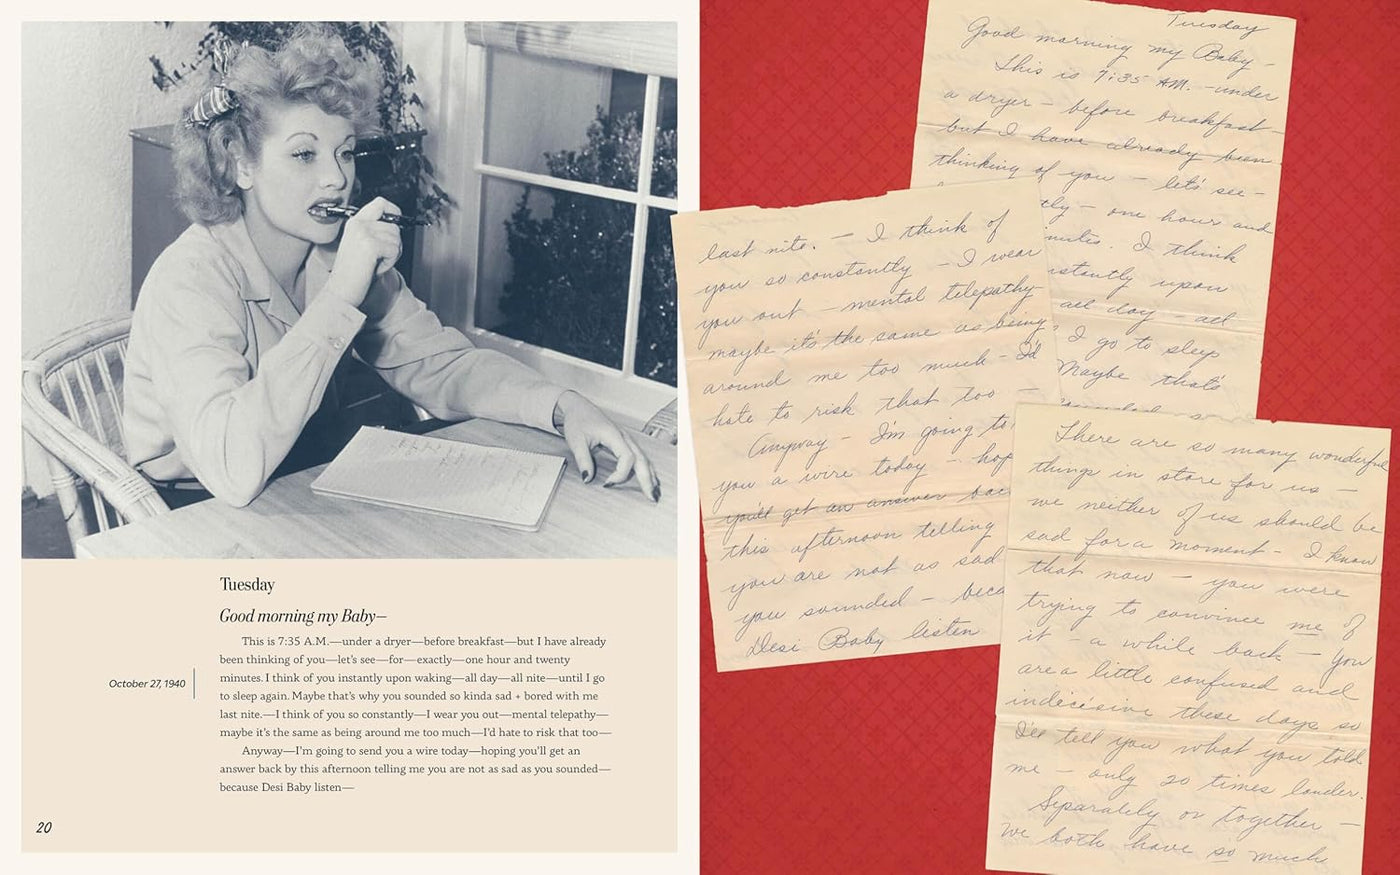 Tuesday
Good morning my Baby—
This is 7:35 A.M.—under a dryer—before breakfast—but I have already
been thinking of you—let's see—for—exactly—one hour and twenty
minutes. I think of you instantly upon waking—all day—all nite—until I go
to sleep again. Maybe that's why you sounded so kinda sad + bored with me
last nite.—I think of you so constantly—I wear you out—mental telepathy—
maybe it's the same as being around me too much—I'd hate to risk that too—
Anyway—I'm going to send you a wire today—hoping you'll get an
answer back by this afternoon telling me you are not as sad as you sounded—
because Desi Baby listen—
October 27, 1940
20
Tuesday
Good morning my Baby –
This is 7:35 AM. – under
a dryer – before breakfast –
but I have already been
thinking of you – let's see –
tly – one hour and
nutes. I think
stantly upon
all day – all
I go to sleep
Maybe that's
last nite. – I think of
you so constantly – I wear
you out – mental telepathy
maybe it's the same as being
around me too much – I'd
hate to risk that too –
Anyway – I'm going to
you a wire today – hop
you'll get an answer bac
this afternoon telling
you are not as sad
you sounded – beca
Desi Baby listen
There are so many wonderful
things in store for us –
we neither of us should be
sad for a moment – I know
that now – you were
trying to convince me of
it – a while back – You
are a little confused and
indecisive these days so
I'll tell you what you told
me – only 20 times louder.
Separately or together –
we both have so much